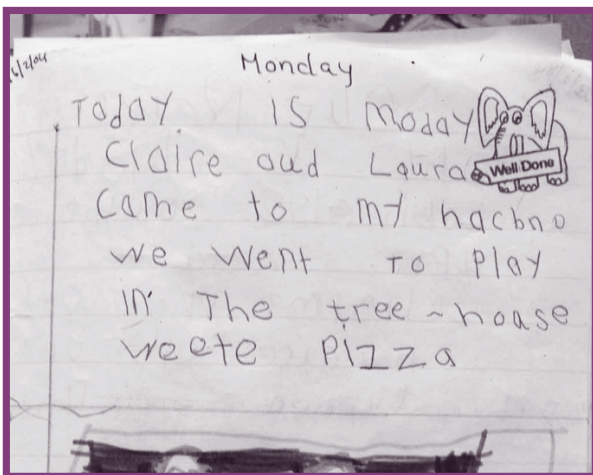 6/2/04
Monday
Today is Moday
Well Done
Claire oud Laura
Came to my hacbno
we went To Play
in The tree-hoase
weete PIZZa